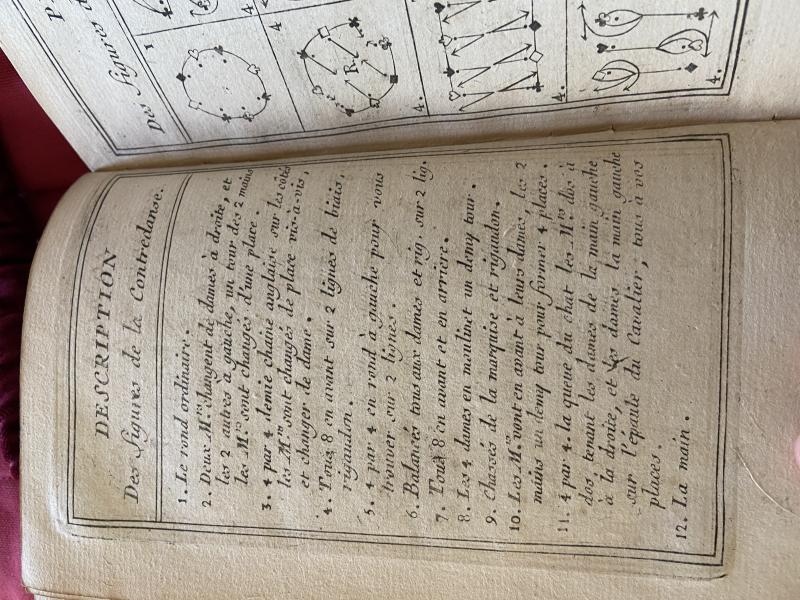 DESCRIPTION
Des figures de la Contredanse.
1. Le rond ordinaire.
2. Deux M.rs changent de dames à droite, et
les 2 autres à gauche, un tour des 2 mains
les M.rs sont changés d'une place.
3. 4 par 4 demie chaine anglaise sur les côtés
les M.rs sont changés de place vis-à-vis,
et changer de dame.
4. Tous 8 en avant sur 2 lignes de biais,
rigaudon.
5. 4 par 4 en rond à gauche pour vous
trouver sur 2 lignes.
6. Balancés tous aux dames et rig. sur 2 lig.
7. Tous 8 en avant et en arriére.
8. Les 4 dames en moulinet un demy tour.
9. Chassés de la marquise et rigaudon.
10. Les M.rs vont en avant à leurs dames, les 2
mains un demy tour pour former 4 places.
11. 4 par 4. la queue du chat les M.rs dos à
dos tenant les dames de la main gauche
à la droite, et les dames la main gauche
sur l'épaule du Cavalier; tous à vos
places.
12. La main.
Des figures d
1
4.
R.
4.
4.
4.